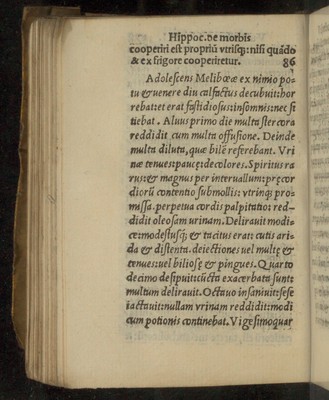 Hippoc. de morbis
cooperiri est propriũ vtrisq;: nisi quãdo
& ex frigore cooperiretur. 86
Adolescens Melibœæ ex nimio po⸗
tu & venere diu calfactus decubuit: hor
rebat: et erat fastidiosus: insomnis: nec si
tiebat. Aluus primo die multa stercora
reddidit cum multa offusione. Deinde
multa diluta, quæ bilẽ referebant. Vri
næ tenues: paucę: decolores. Spiritus ra
rus: & magnus per interuallum: pręcor
diorũ contentio submollis: vtrinq; pro⸗
missa. perpetua cordis palpitatio: red⸗
didit oleosam urinam. Delirauit modi⸗
ce: modestusq; & tacitus erat: cutis ari⸗
da & distenta. deiectiones uel multę &
tenues: uel biliosę & pingues. Quarto
decimo desipuit: cũcta exacerbata sunt:
multum delirauit. Octauo insaniuit: sese
iactauit: nullam vrinam reddidit: modi
cum potionis continebat. Vigesimoquar